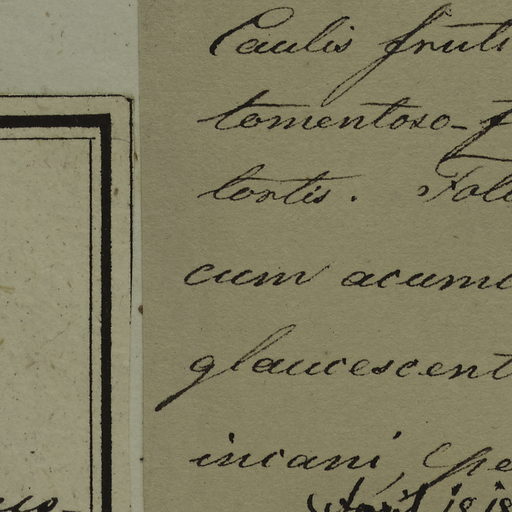 Caulis fruti
tomentoso-f
tortis. Foli
cum acumi
glaucescent
incani, pe
April 1818